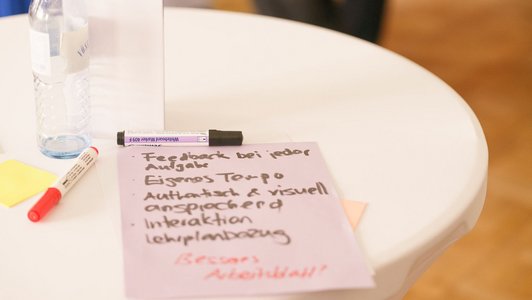 Whiteboard Marker 805 F
· Feedback bei jeder
Aufgabe
· Eigenes Tempo
· Authentisch & visuell
ansprechend
· Interaktion
· Lehrplanbezug
Besseres
Arbeitsblatt?